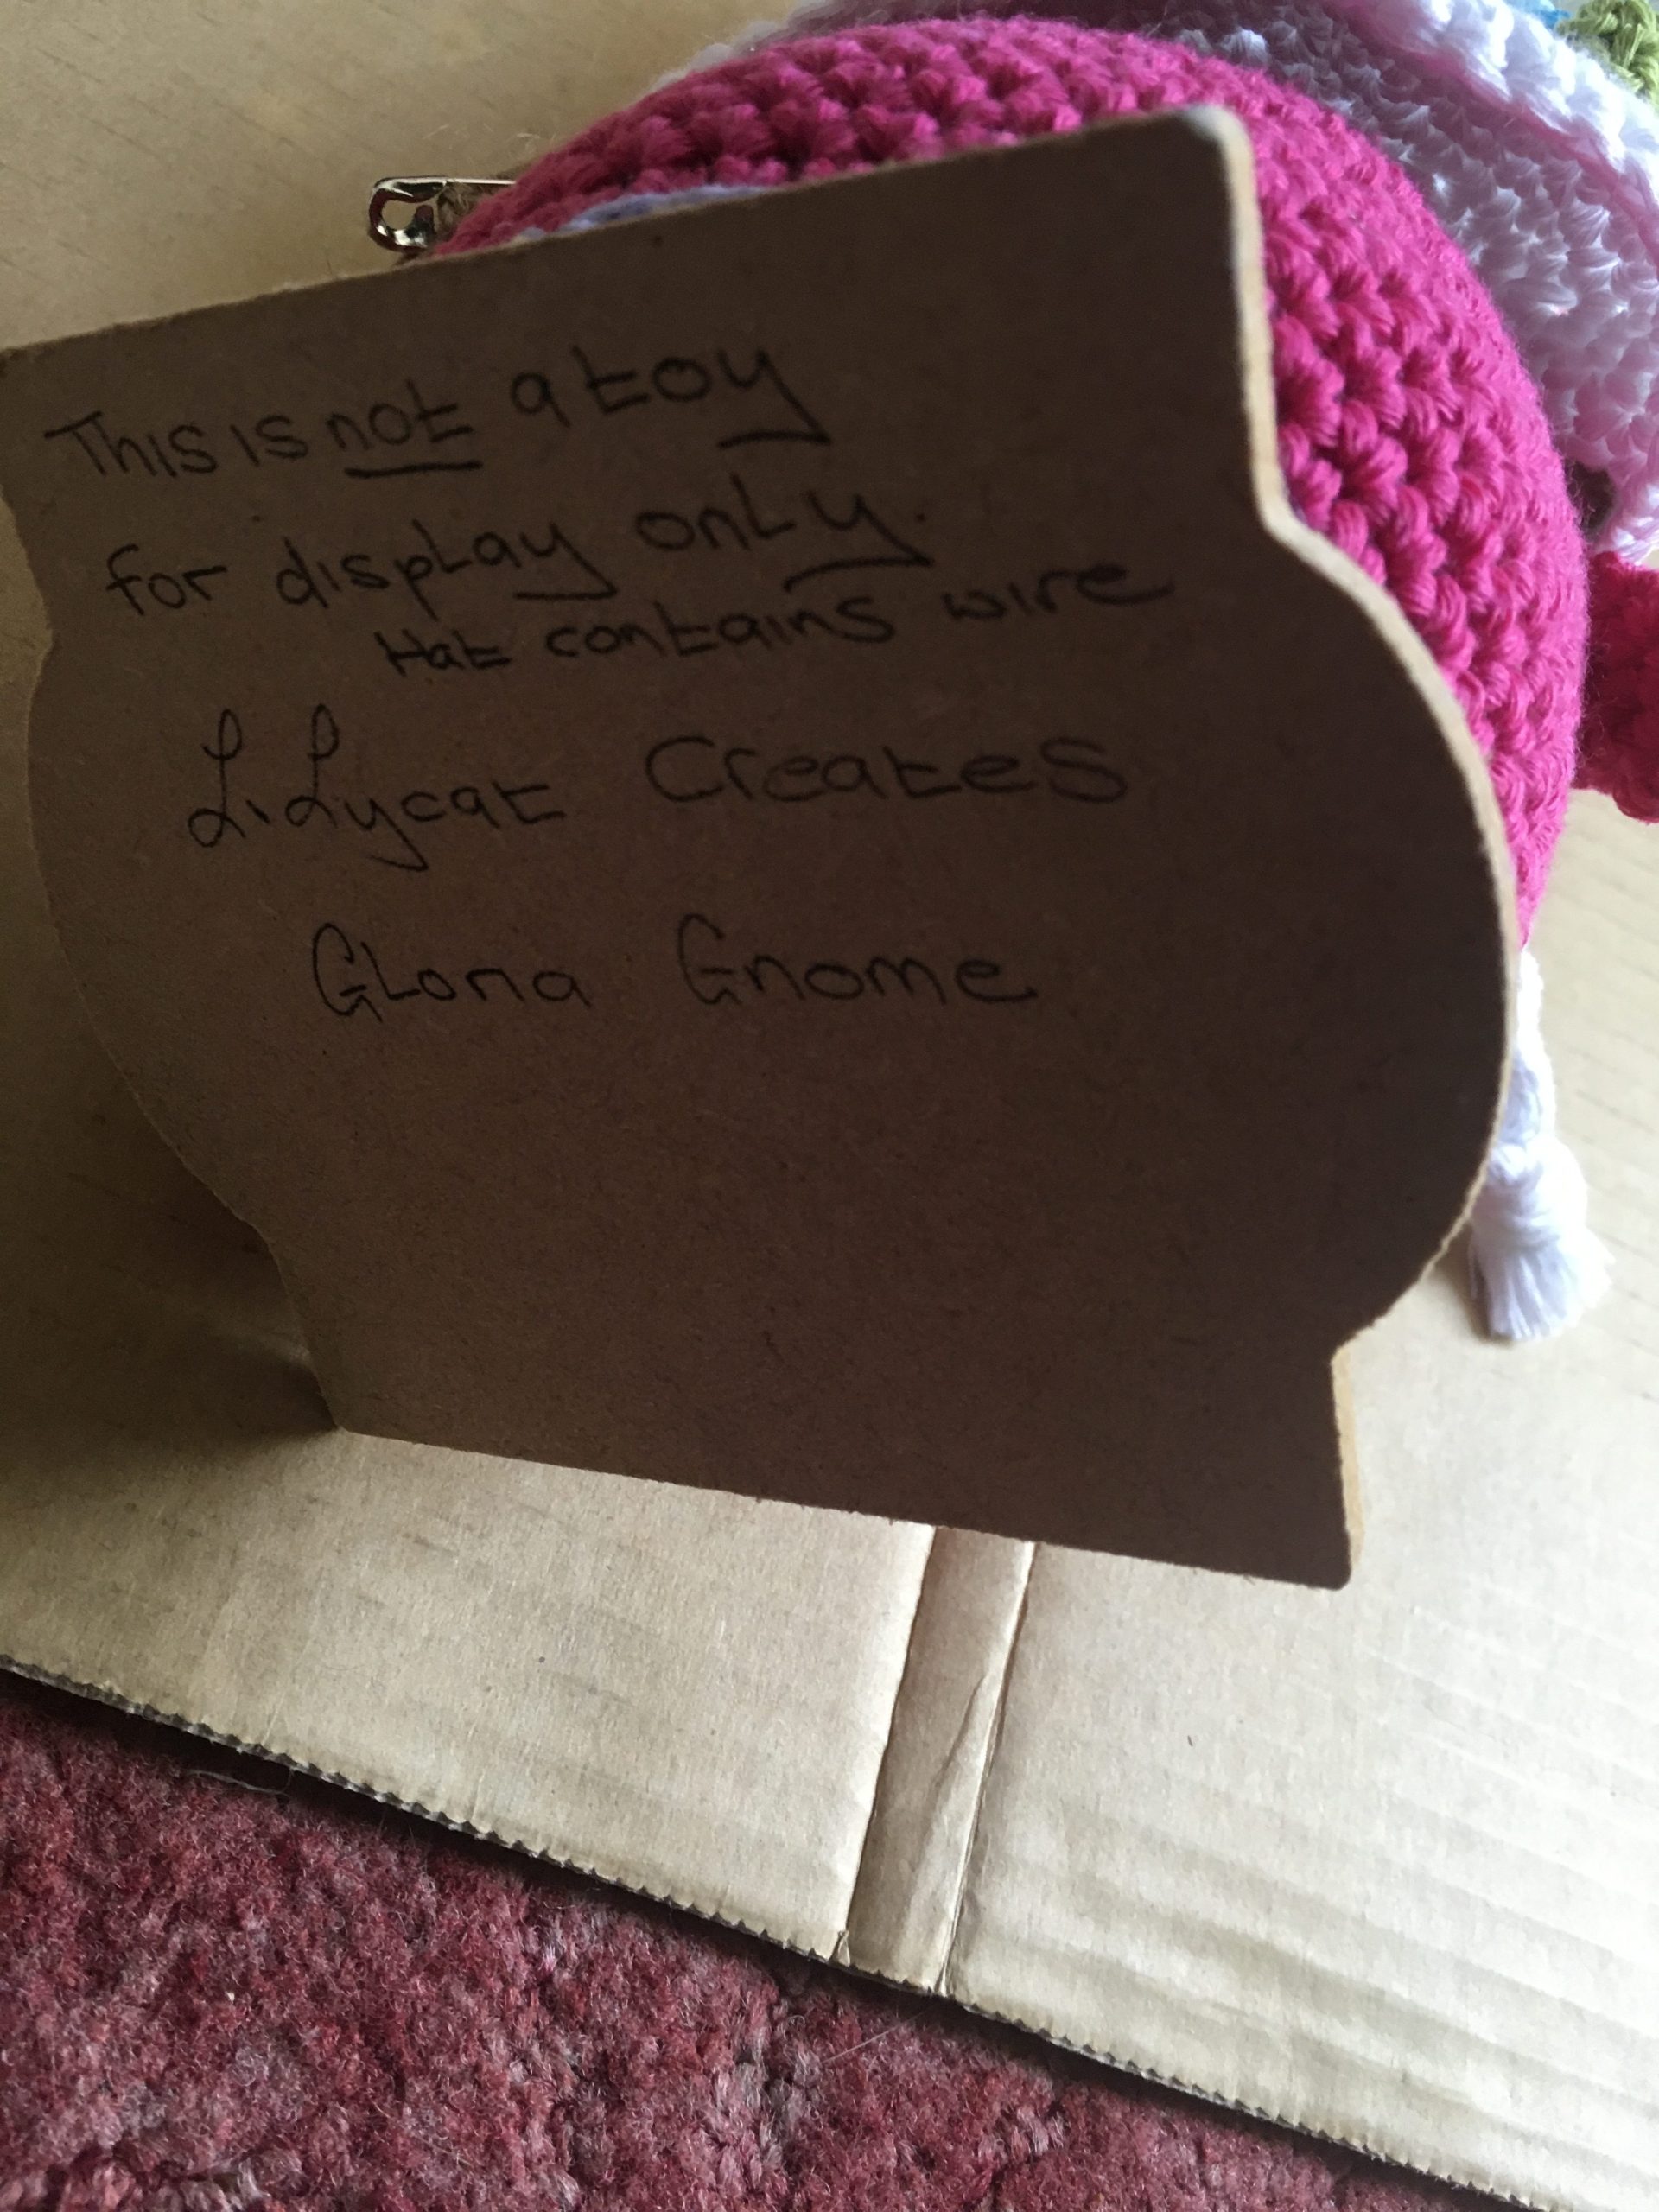 This is not a toy
for display only.
Hat contains wire
Lilycat Creates
Gloria Gnome